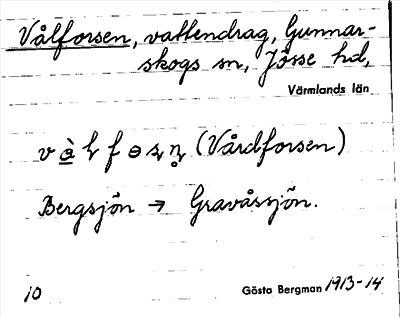 Vålforsen, vattendrag, Gunnar-
skogs sn, Jösse hd,
Värmlands län
(Vårdforsen)
Bergsjön → Gravåssjön.
10 Gösta Bergman 1913-14